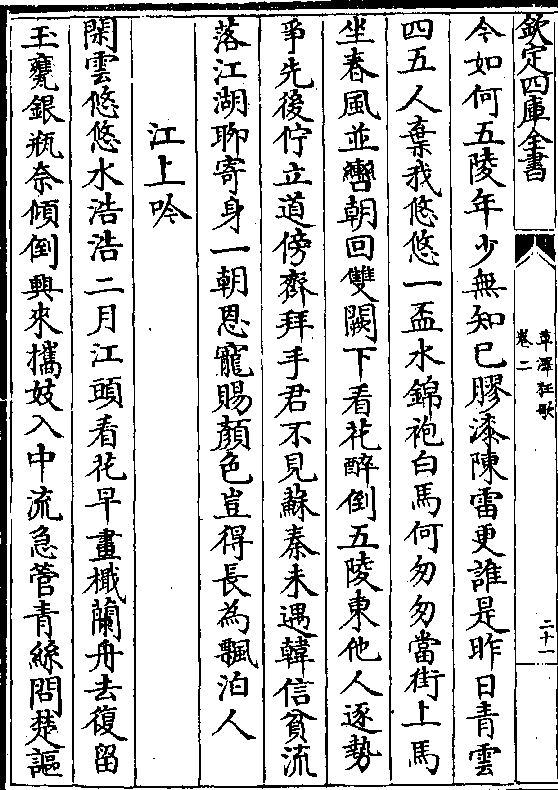 欽定四庫全書
草澤狂歌
卷二
二十一
今如何五陵年少無知已膠漆陳雷更誰是昨日青雲
四五人棄我悠悠一盃水錦袍白馬何匆匆當街上馬
坐春風並轡朝回雙闕下看花醉倒五陵東他人逐勢
爭先後佇立道傍齊拜手君不見蘇秦未遇韓信貧流
落江湖聊寄身一朝恩寵賜顏色豈得長為飄泊人
江上吟
閑雲悠悠水浩浩二月江頭看花早畫檝蘭舟去復留
玉甕銀瓶奈傾倒興來攜妓入中流急管青絲問楚謳